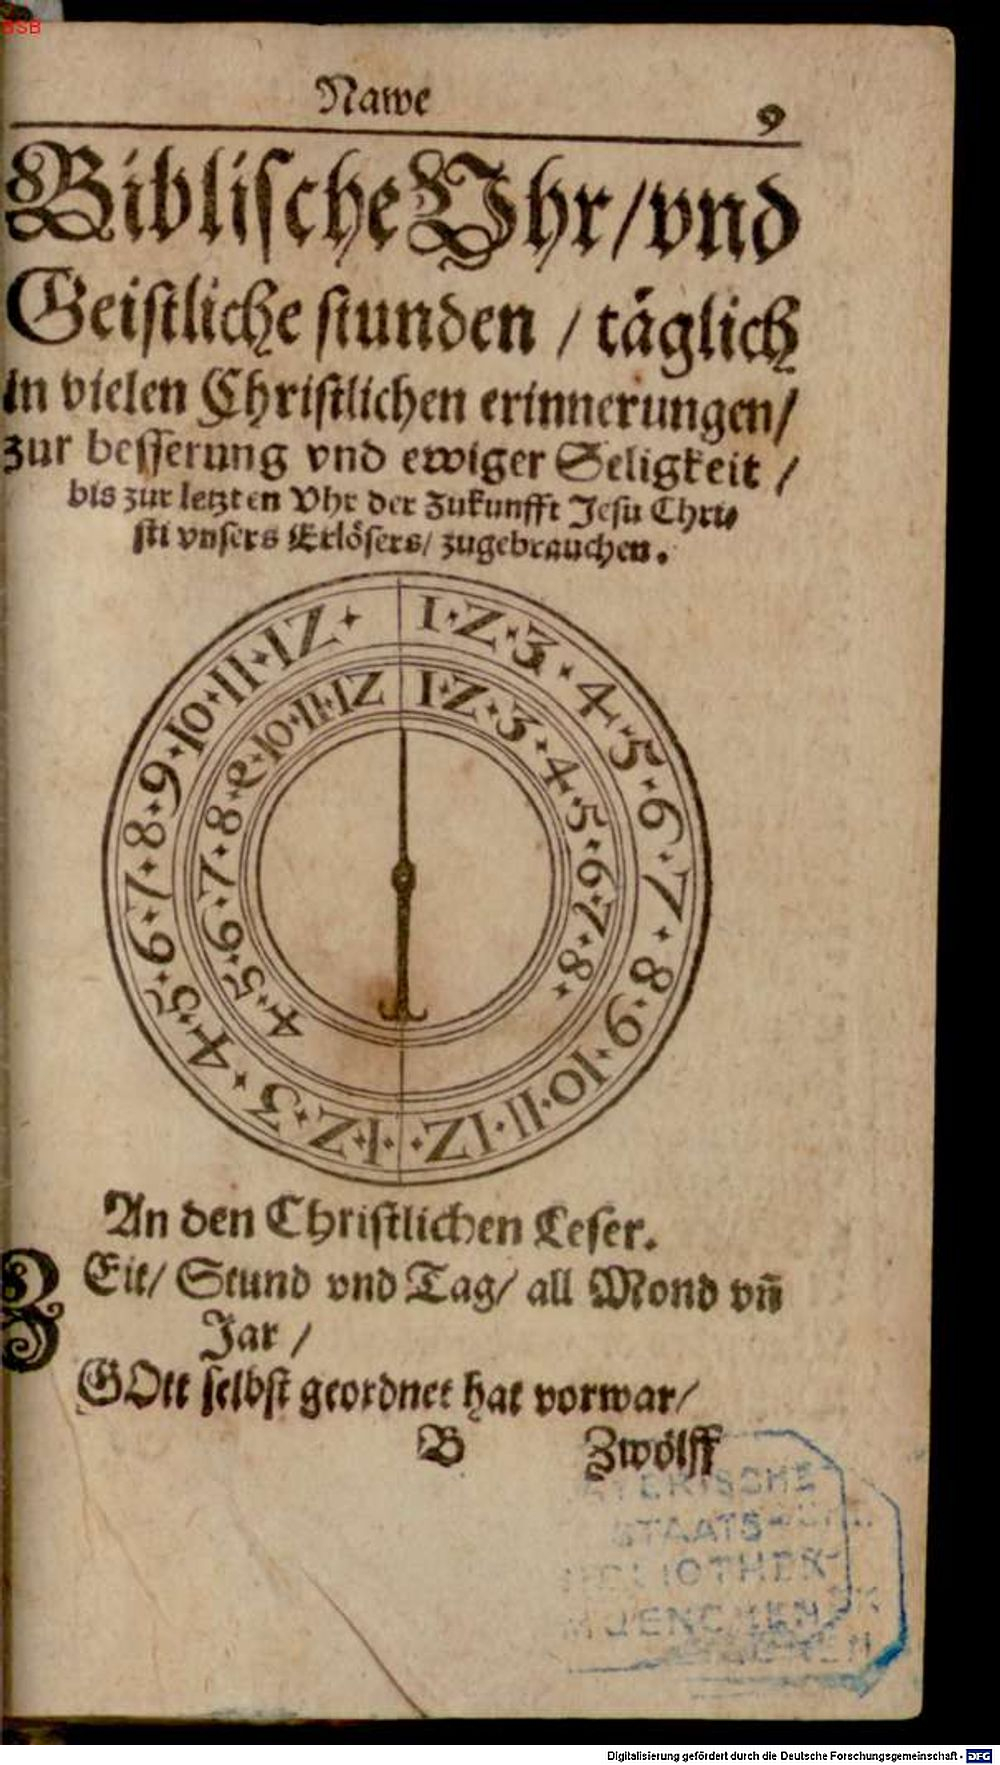 BSB
Nawe
9
Biblische Vhr/vnd
Geistliche stunden / täglich
in vielen Christlichen erinnerungen/
zur besserung vnd ewiger Seligkeit /
bis zur letzten Vhr der Zukunfft Jesu Chri-
sti vnsers Erlösers/ zugebrauchen.
1·2·3·4·5·6·7·8·9·10·11·12·1·2·3·4·5·6·7·8·9·10·11·12
1·2·3·4·5·6·7·8· 4·5·6·7·8·9·10·11·12
An den Christlichen Leser.
ZEit/ Stund vnd Tag/ all Mond vn̄
Jar /
GOtt selbst geordnet hat vorwar/
B Zwölff
BAYERISCHE
STAATS-
BIBLIOTHEK
MUENCHEN
Digitalisierung gefördert durch die Deutsche Forschungsgemeinschaft - DFG